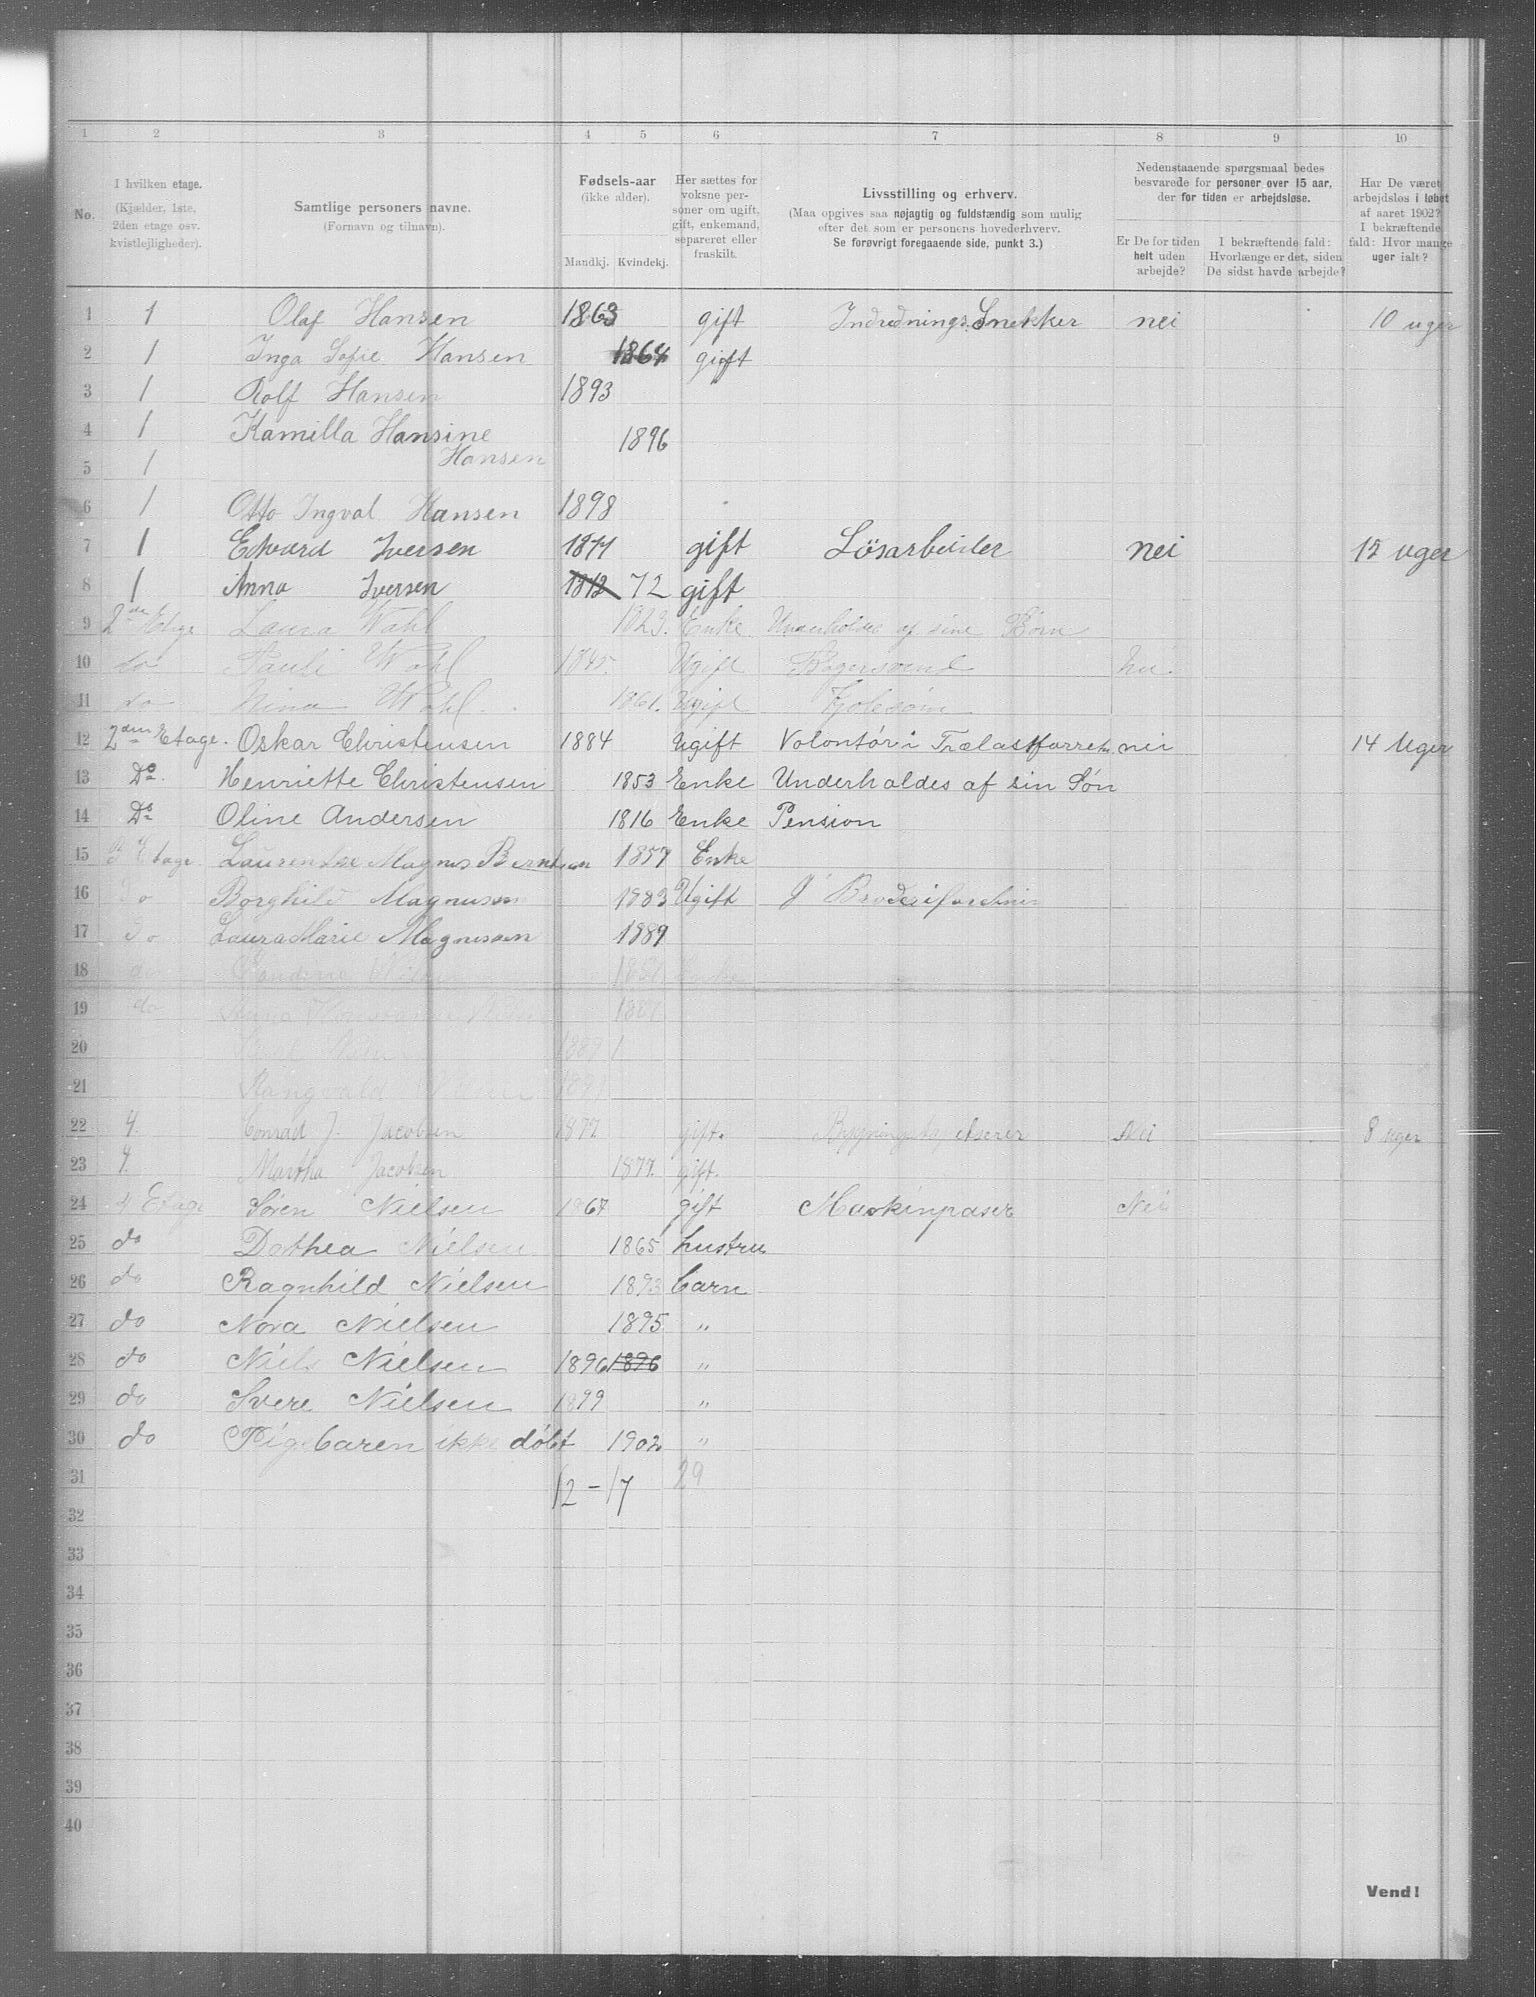 1 2 3 4 5 6 7 8 9 10
No.
I hvilken etage.
(Kjælder, 1ste,
2den etage osv.
kvistlejligheder).
Samtlige personers navne.
(Fornavn og tilnavn).
Fødsels-aar
(ikke alder).
Mandkj. Kvindekj.
Her sættes for
voksne per-
soner om ugift,
gift, enkemand,
separeret eller
fraskilt.
Livsstilling og erhverv.
(Maa opgives saa nøjagtig og fuldstændig som mulig
efter det som er personens hovederhverv.
Se forøvrigt foregaaende side, punkt 3.)
Nedenstaaende spørgsmaal bedes
besvarede for personer over 15 aar,
der for tiden er arbejdsløse.
Er De for tiden
helt uden
arbejde?
I bekræftende fald:
Hvorlænge er det, siden
De sidst havde arbejde?
Har De været
arbejdsløs i løbet
af aaret 1902?
I bekræftende
fald: Hvor mange
uger ialt?
1 1 Olaf Hansen 1863 gift Indrednings Snekker nei 10 uger
2 1 Inga Sofie Hansen 1864 gift
3 1 Rolf Hansen 1893
4 1 Kamilla Hansine 1896
5 1 Hansen
6 1 Otto Ingval Hansen 1898
7 1 Edvard Iversen 1871 gift Lösarbeider nei 12 uger
8 1 Anna Iversen 1872 72 gift
9 2den Etage Laura Wahl 1829. Enke Underholdes af sine Børn
10 do Pauli Wahl 1845. Ugift Bagersvend nei.
11 do Nina Wahl. 1861. Ugift Kjolesøm
12 2den Etage. Oskar Christensen 1884 Ugift Volontør i Trælastforretn. nei 14 Uger
13 Do. Henriette Christensen 1853 Enke Underholdes af sin Søn
14 Do Oline Andersen 1816 Enke Pension
15 3 Etage. Laurentse Magnus Berntsen 1857 Enke
16 do Borghild Magnusen 1883 Ugift I Broderiforretning
17 do Laura Marie Magnussen 1889
18 do Enke
19 do Anna
20
21 Rangvald
22 4. Conrad J. Jacobsen 1877 gift. Bygningssnedker Nei 8 uger
23 4. Martha Jacobsen 1877. gift.
24 4 Etage Søren Nielsen 1867 gift Maskinpaser Nei
25 do Dorthea Nielsen 1865 hustru
26 do Ragnhild Nielsen 1893 barn
27 do Nora Nielsen 1895 "
28 do Niels Nielsen 1896 1896 "
29 do Svere Nielsen 1899 "
30 do Pigebaren ikke døbt 1902 "
31 12 - 17 29
32
33
34
35
36
37
38
39
40
Vend!